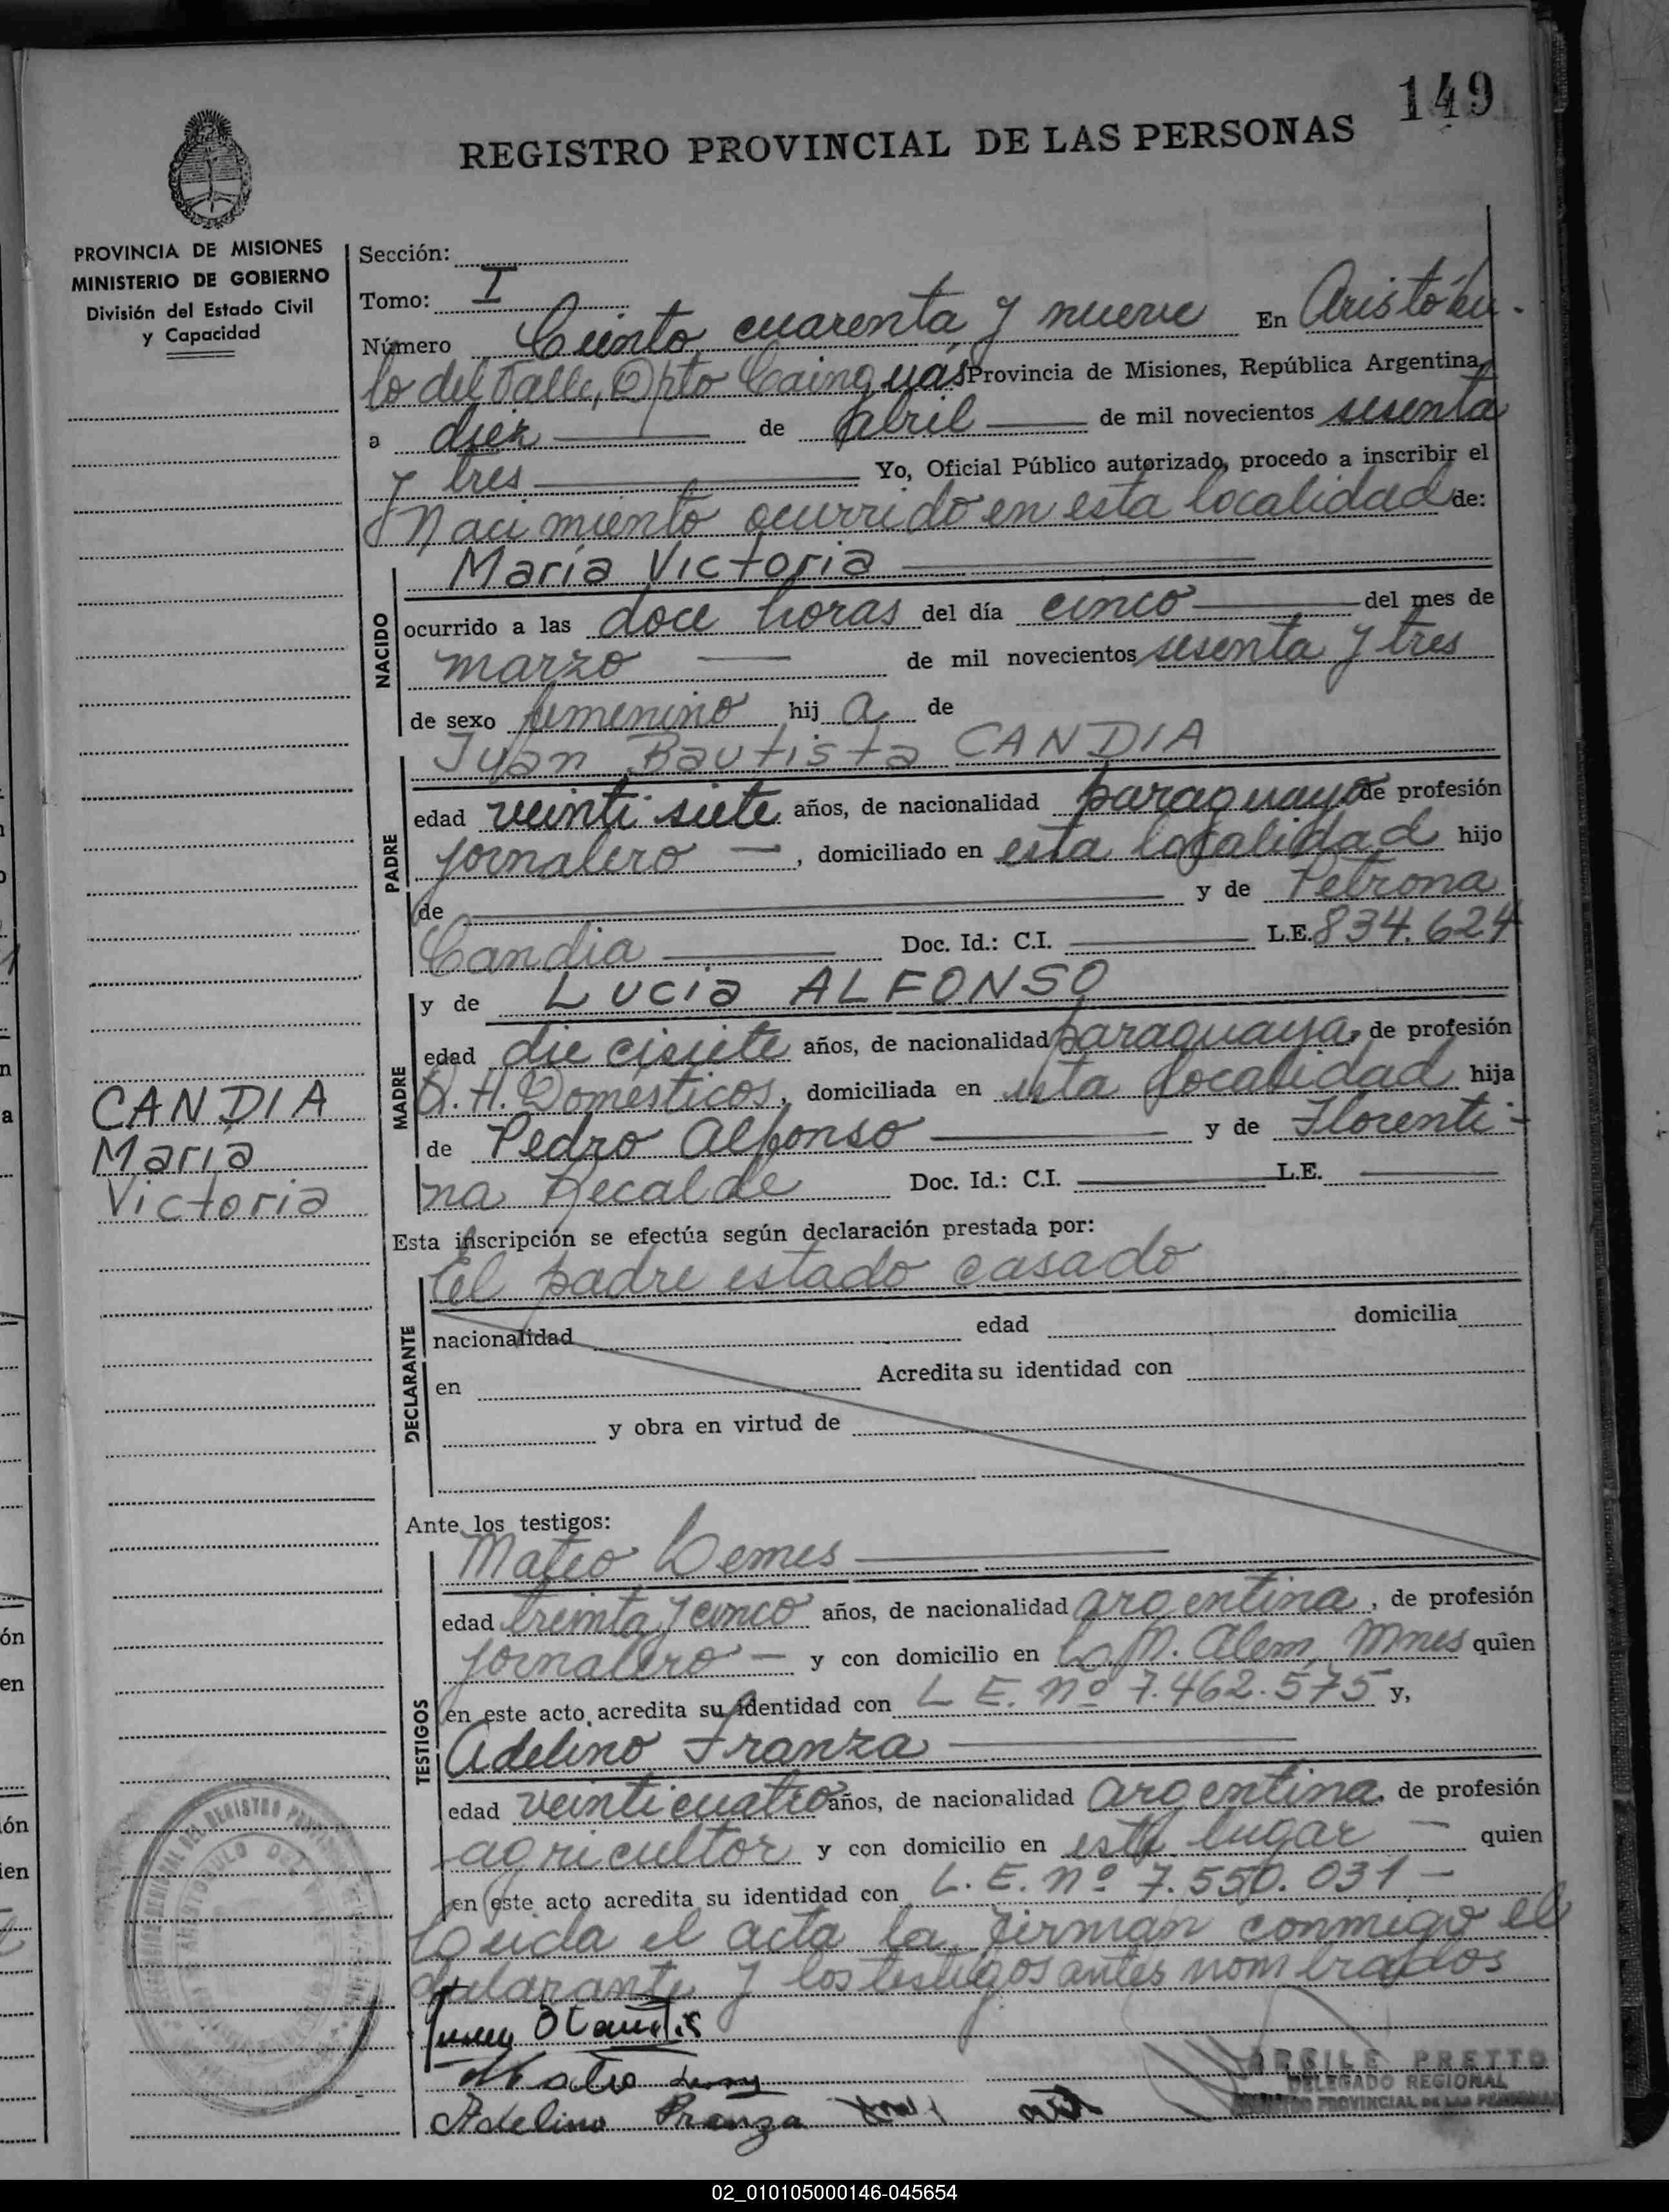 149
REGISTRO PROVINCIAL DE LAS PERSONAS
PROVINCIA DE MISIONES
MINISTERIO DE GOBIERNO
División del Estado Civil
y Capacidad
Sección:
Tomo: I
Número Ciento cuarenta y nueve En Aristóbu-
lo del Valle, Dpto Cainguás Provincia de Misiones, República Argentina,
a diez de Abril de mil novecientos sesenta
y tres Yo, Oficial Público autorizado, procedo a inscribir el
Nacimiento ocurrido en esta localidad de:
NACIDO
María Victoria
ocurrido a las doce horas del día cinco del mes de
marzo de mil novecientos sesenta y tres
de sexo femenino hij a de
PADRE
Juan Bautista CANDIA
edad veinti siete años, de nacionalidad paraguaya de profesión
jornalero, domiciliado en esta localidad hijo
de y de Petrona
Candia Doc. Id.: C.I. L.E. 834.624
MADRE
y de Lucia ALFONSO
edad diecisiete años, de nacionalidad paraguaya, de profesión
Q.H. Domésticos, domiciliada en esta localidad hija
de Pedro Alfonso y de Florenti-
na Recalde Doc. Id.: C.I. L.E.
CANDIA
María
Victoria
Esta inscripción se efectúa según declaración prestada por:
DECLARANTE
El padre estado casado
nacionalidad edad domicilia
en Acredita su identidad con
y obra en virtud de
Ante los testigos:
TESTIGOS
Mateo Lemes
edad treinta y cinco años, de nacionalidad argentina, de profesión
jornalero y con domicilio en L.N. Alem, Mnes quien
en este acto acredita su identidad con L E. nº 7.462.575 y,
Adelino Franza
edad veinticuatro años, de nacionalidad argentina, de profesión
agricultor y con domicilio en este lugar quien
en este acto acredita su identidad con L. E. nº 7.550.031-
Leida el acta la firman conmigo el
declarante y los testigos antes nombrados
Adelino Franza
PRETTO
DELEGADO REGIONAL
REGISTRO PROVINCIAL DE LAS PERSONAS
02_010105000146-045654